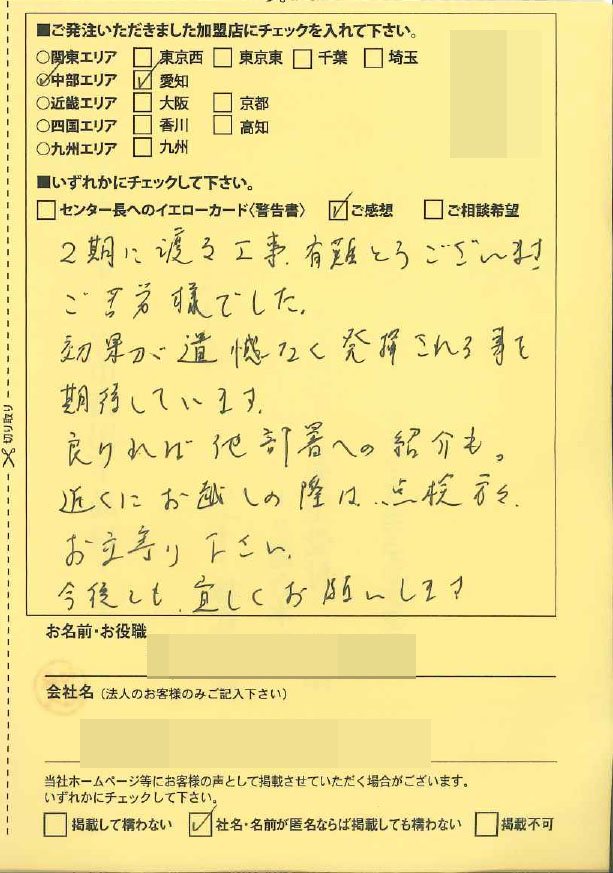 ■ご発注いただきました加盟店にチェックを入れて下さい。
○関東エリア □東京西 □東京東 □千葉 □埼玉
○中部エリア ☑愛知
○近畿エリア □大阪 □京都
○四国エリア □香川 □高知
○九州エリア □九州
■いずれかにチェックして下さい。
□センター長へのイエローカード〈警告書〉 ☑ご感想 □ご相談希望
2期に渡る工事、有難とうございます
ご苦労様でした。
効果が遺憾なく発揮される事を
期待しています。
良ければ他部署への紹介も。
近くにお越しの際は、点検方々、
お立寄り下さい。
今後とも、宜しくお願いします
切り取り
お名前・お役職
会社名（法人のお客様のみご記入下さい）
当社ホームページ等にお客様の声として掲載させていただく場合がございます。
いずれかにチェックして下さい。
□掲載して構わない ☑社名・名前が匿名ならば掲載しても構わない □掲載不可